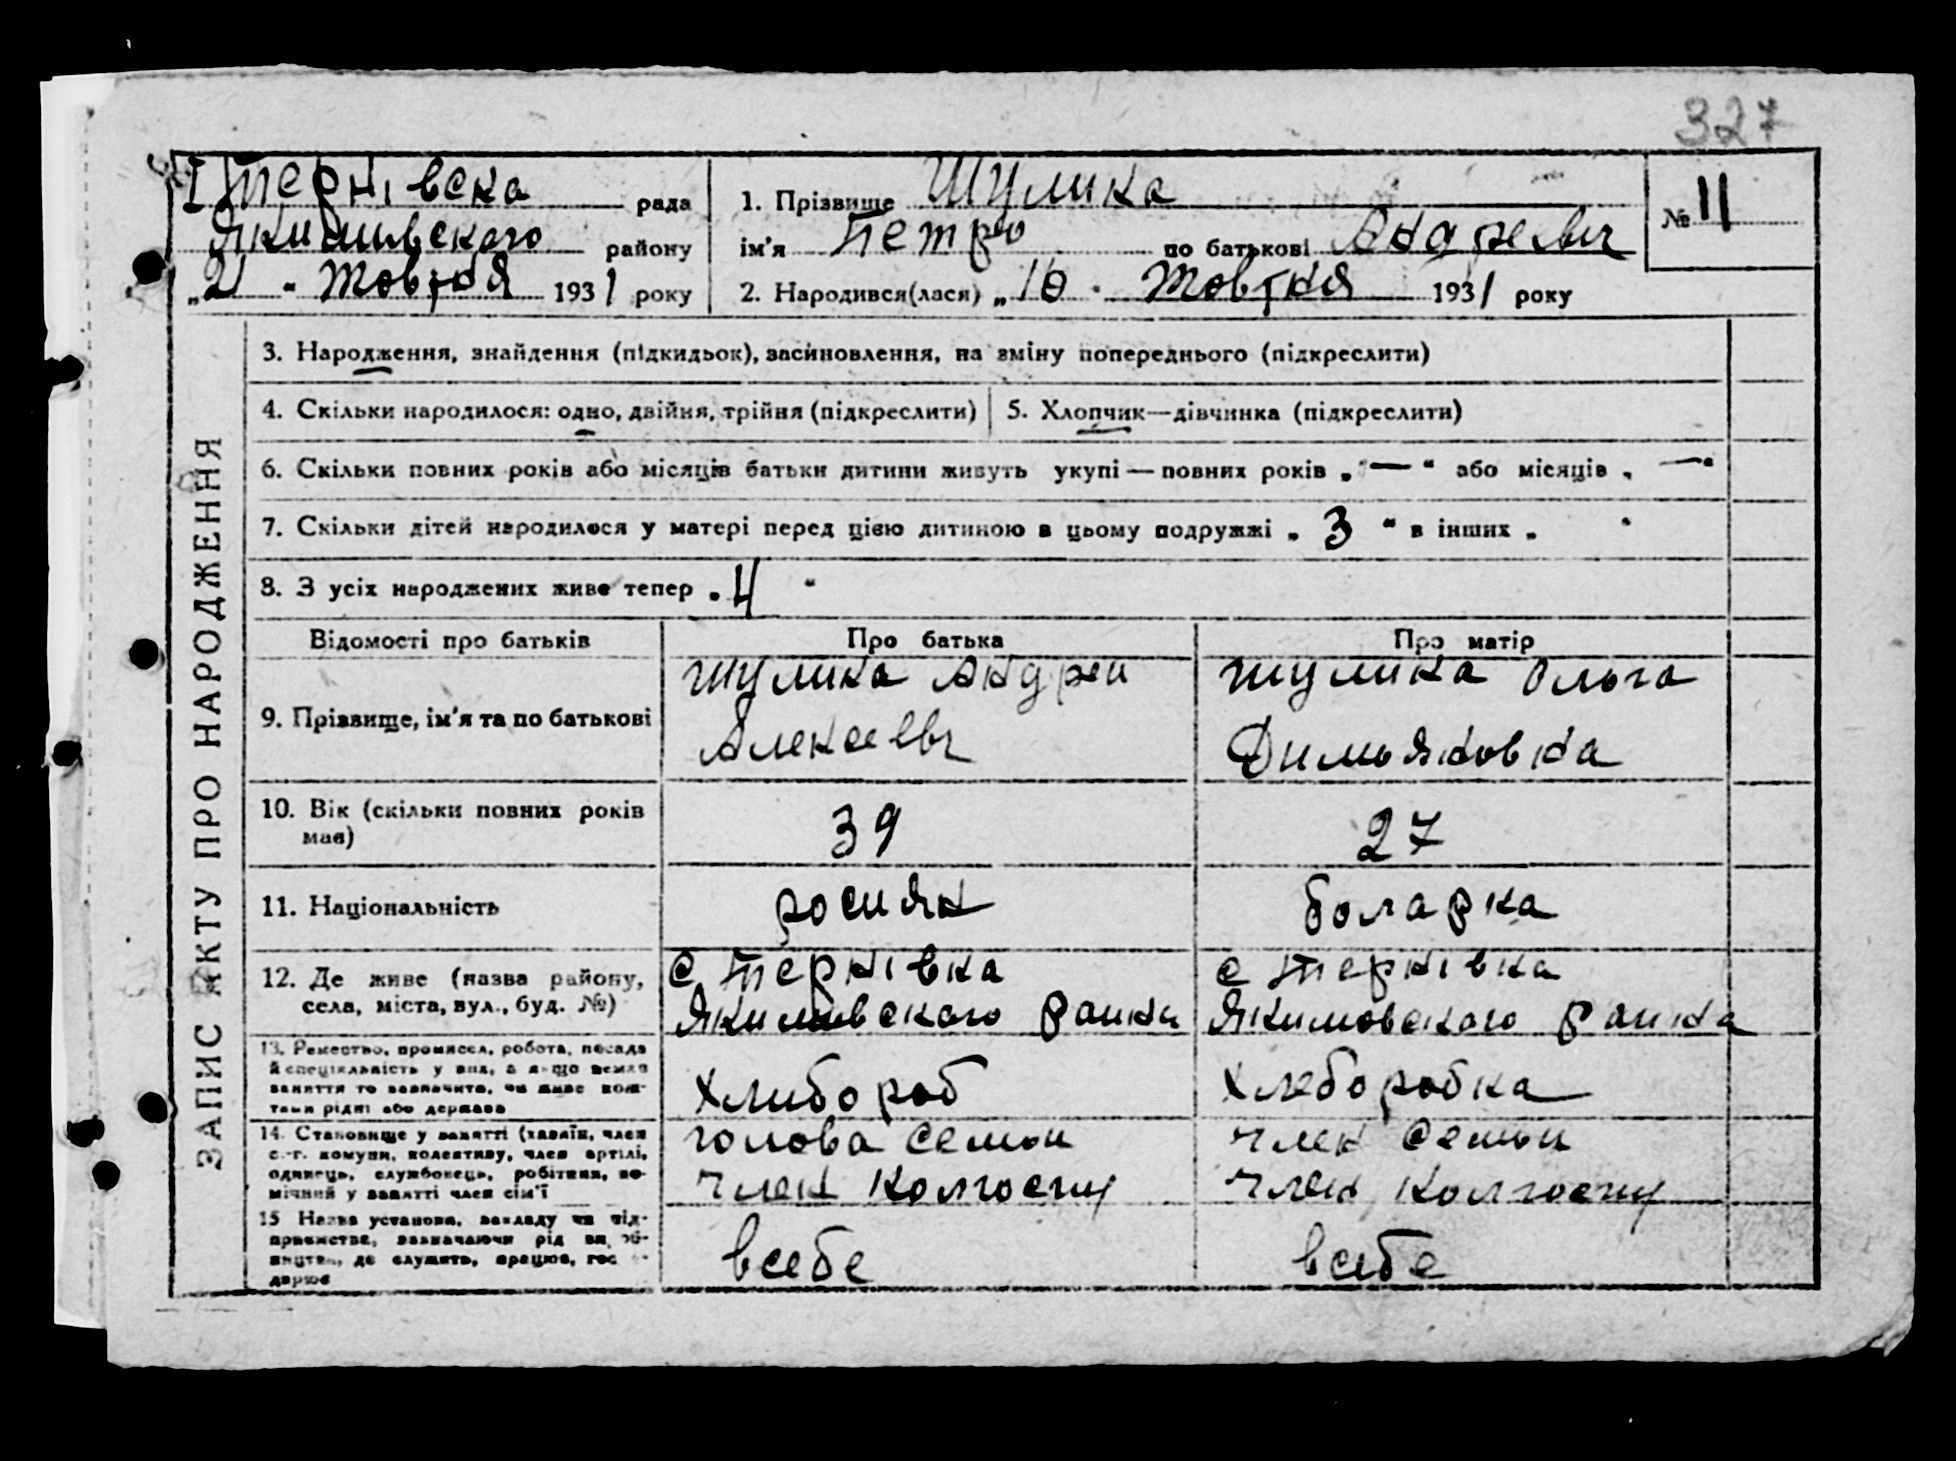 327
І Тернівска рада
Якимивского району
„21“ Жовтня 1931 року
1. Прізвище Шулика
ім'я Петро по батькові Андреевич
2. Народився(лася) „10“ Жовтня 1931 року
№ 11
ЗАПИС АКТУ ПРО НАРОДЖЕННЯ
3. Народження, знайдення (підкидьок), засиновлення, на зміну попереднього (підкреслити)
4. Скільки народилося: одно, двійня, трійня (підкреслити)
5. Хлопчик—дівчинка (підкреслити)
6. Скільки повних років або місяців батьки дитини живуть укупі — повних років „—“ або місяців „—“
7. Скільки дітей народилося у матері перед цією дитиною в цьому подружжі „3“ в інших „ “
8. З усіх народжених живе тепер „4“
Відомості про батьків
Про батька
Про матір
9. Прізвище, ім'я та по батькові
Шулика Андреи
Алексеевич
Шулика Ольга
Димьяновна
10. Вік (скільки повних років
має)
39
27
11. Національність
росиян
болгарка
12. Де живе (назва району,
села, міста, вул., буд. №)
с Тернівка
Якимивского раина
с Тернівка
Якимовского раина
13. Ремество, промисел, робота, посада
й спеціяльність у них, а якщо немає
заняття то зазначити, чи живе кош-
тами рідні або держава
Хлибороб
Хлеборобка
14. Становище у занятті (хазаїн, член
с.-г. комуни, колективу, член артілі,
одинець, службовець, робітник, по-
мічний у занятті член сім'ї
голова семьи
член колгоспу
член семьи
член колгоспу
15 Назва установи, закладу чи під-
приємства, зазначаючи рід вироб-
ництва, де служить, працює, гос
дарює
всебе
всебе